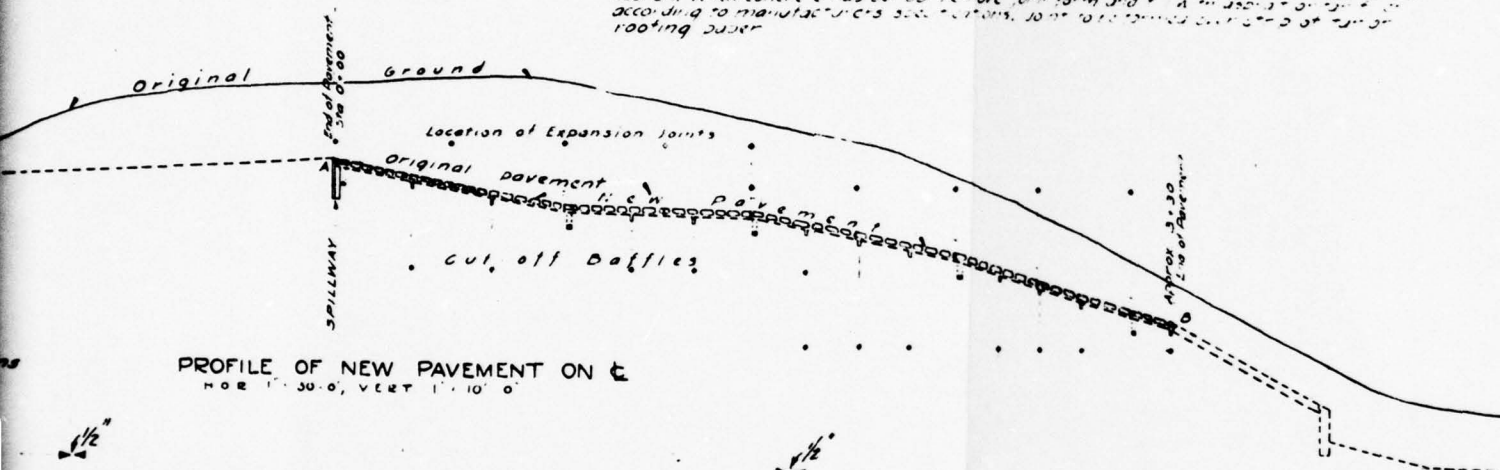 according to manufacturers specifications. Joint to be formed over strip of tar or
roofing paper
Original Ground
End of Pavement
Sta 0+00
Location of Expansion Joints
A
Original pavement
New Pavement
Cut off Baffles
SPILLWAY
Approx 3+30
End of Pavement
B
PROFILE OF NEW PAVEMENT ON ℄
HOR 1"=30'-0", VERT 1"=10'-0"
1/2"
1/2"